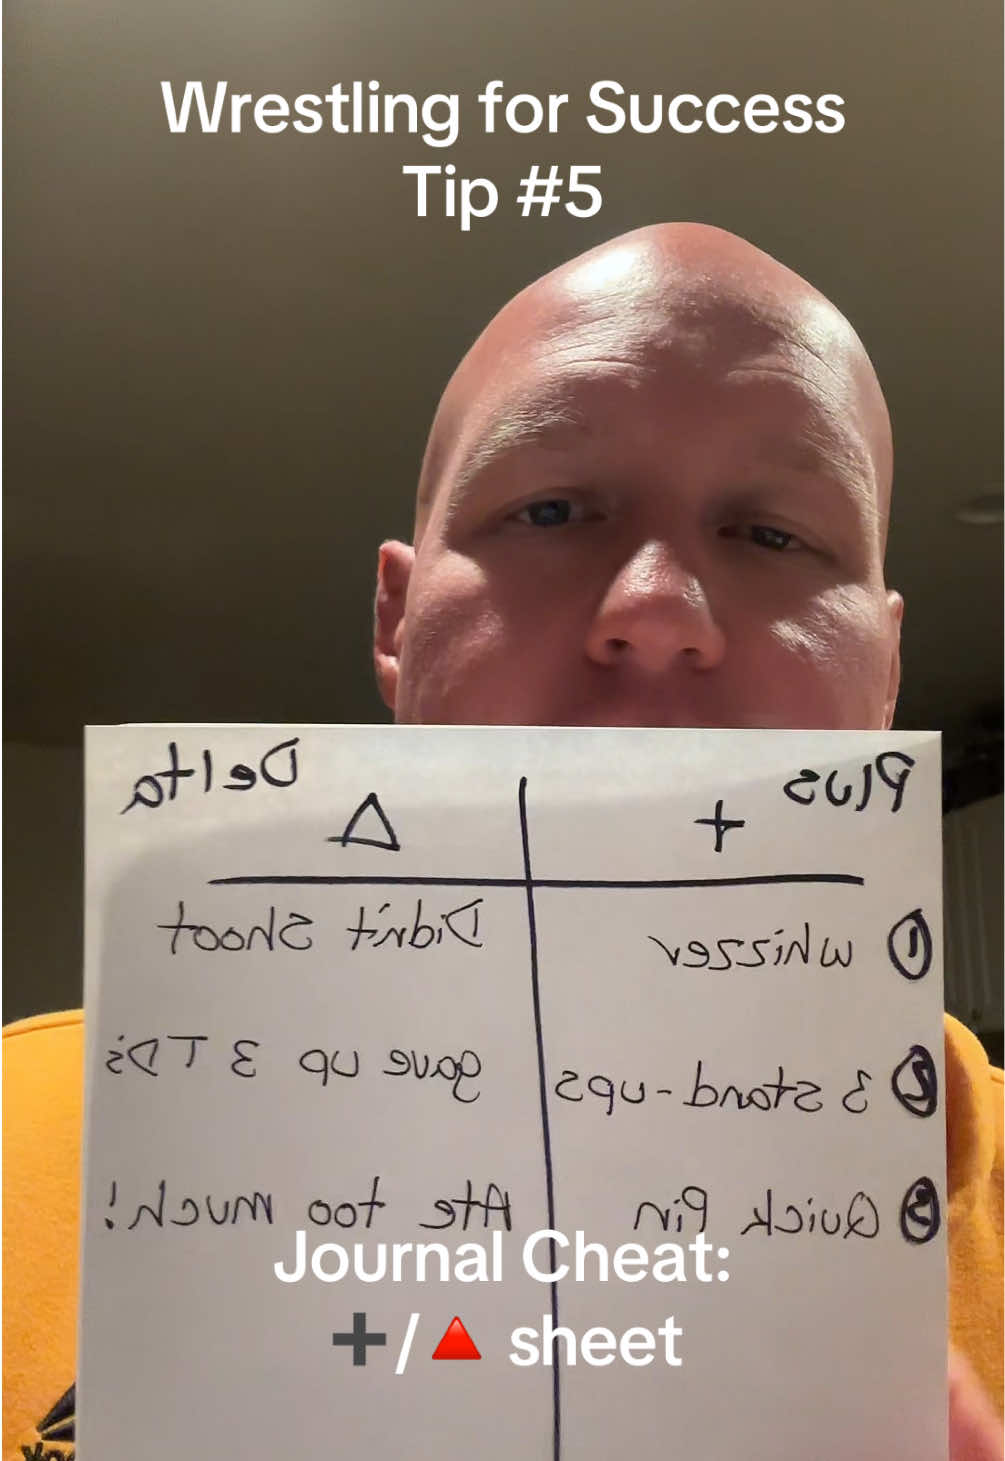 Wrestling for Success
Tip #5
Plus Delta
+ Δ
① whizzer Didn't Shoot
② 3 stand-ups gave up 3 TD's
③ Quick Pin Ate too much!
Journal Cheat:
➕/🔺 sheet